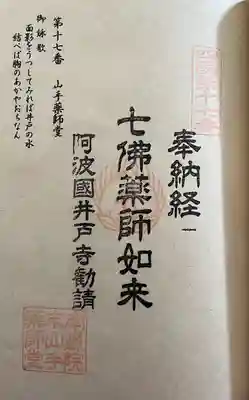 奉納経
七佛薬師如来
阿波國井戸寺勧請
第十七番 山手薬師堂
御詠歌
面影をうつしてみれば井戸の水
結べば胸のあかやおちなん